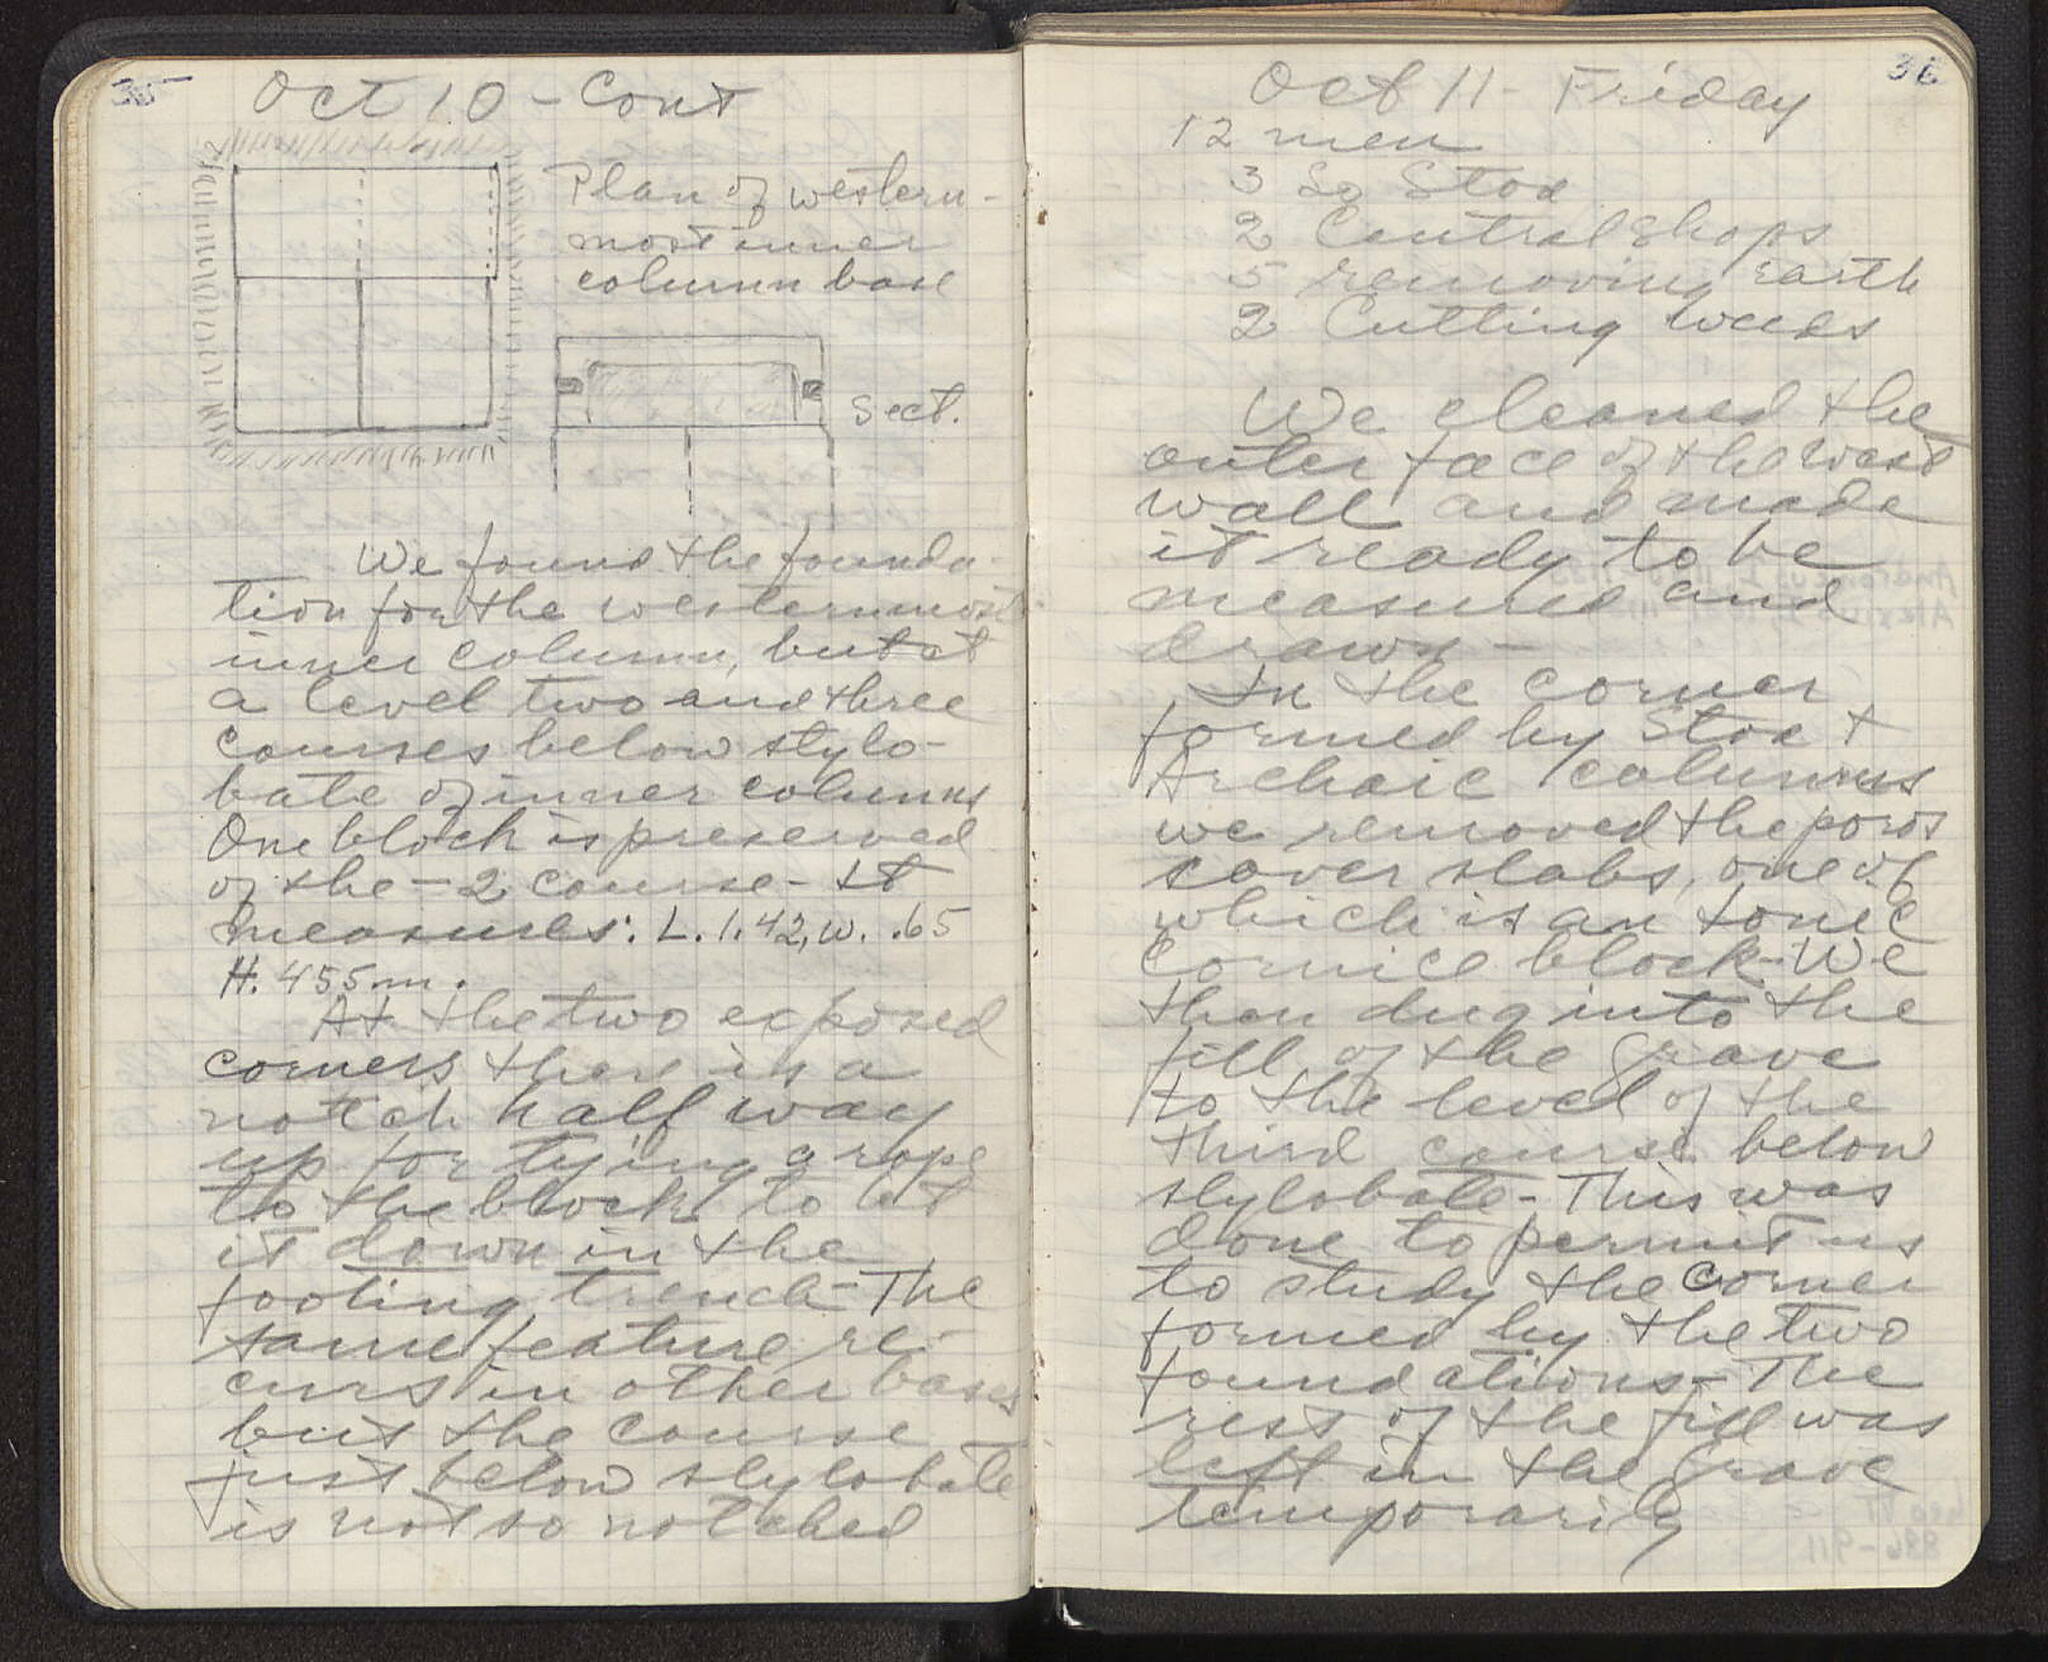 35
Oct 10 - Cont
Plan of western-
most inner
column base
Sect.
We found the founda-
tion for the westernmost
inner column, but at
a level two and three
courses below stylo-
bate of inner columns
One block is preserved
of the -2 course - It
measures: L. 1.42, w. .65
H. 455 m.
At the two exposed
corners there is a
notch half way
up for tying a rope
to the block to let
it down in the
footing trench - The
same feature re-
curs in other bases
but the course
just below stylobate
is not so notched
36
Oct 11 - Friday
12 men
3 So Stoa
2 Central Shops
5 removing earth
2 Cutting weeds
We cleaned the
outer face of the west
wall and made
it ready to be
measured and
drawn -
In the corner
formed by Stoa +
Archaic columns
we removed the poros
cover slabs, one of
which is an Ionic
Cornice block - We
then dug into the
fill of the grave
to the level of the
third course below
stylobate - This was
done to permit us
to study the corner
formed by the two
foundations - The
rest of the fill was
left in the grave
temporarily